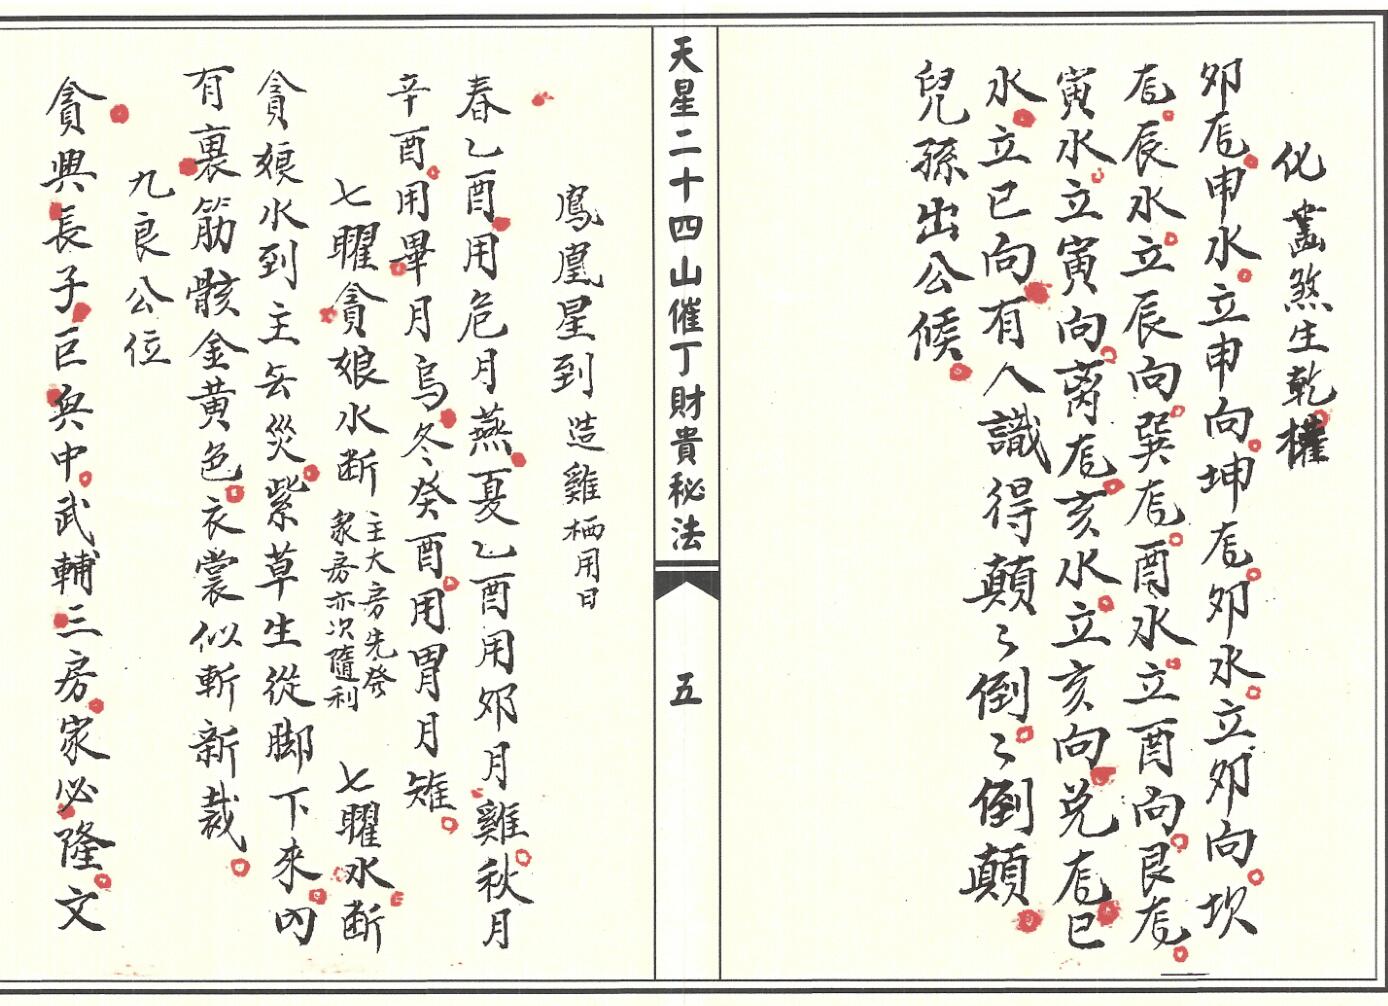 化煞生乾權
卯龙申水立申向坤龙卯水立卯向坎
龙辰水立辰向巽龙酉水立酉向艮龙
寅水立寅向离龙亥水立亥向兑龙巳
水立巳向有人識得顛〻倒〻倒顛
兒孫出公候
天星二十四山催丁財貴秘法
五
鳳凰星到 造雞栖用日
春乙酉用危月燕夏乙酉用卯月雞秋月
辛酉用畢月烏冬癸酉用胃月雉
七曜貪娘水断 主大房先發
衆房亦次隨利 七曜水断
貪娘水到主无災紫草生從脚下來內
有裹筋骸金黄色衣裳似斬新裁
九良公位
貪與長子巨與中武輔三房家必隆文